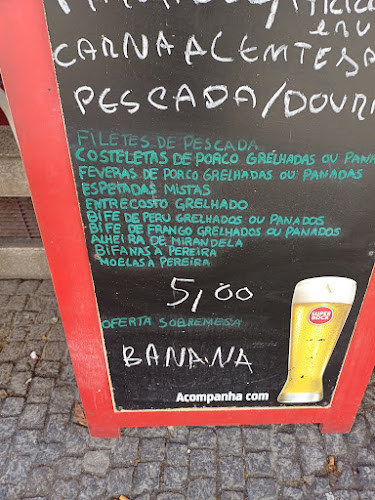 CARNA ALEMTEJA
PESCADA/DOUR
FILETES DE PESCADA
COSTELETAS DE PORCO GRELHADAS OU PANA
FEVERAS DE PORCO GRELHADAS OU PANADAS
ESPETADAS MISTAS
ENTRECOSTO GRELHADO
BIFE DE PERU GRELHADOS OU PANADOS
BIFE DE FRANGO GRELHADOS OU PANADOS
ALHEIRA DE MIRANDELA
BIFANAS À PEREIRA
MOELAS À PEREIRA
5,00
OFERTA SOBREMESA
BANANA
SUPER BOCK
Acompanha com